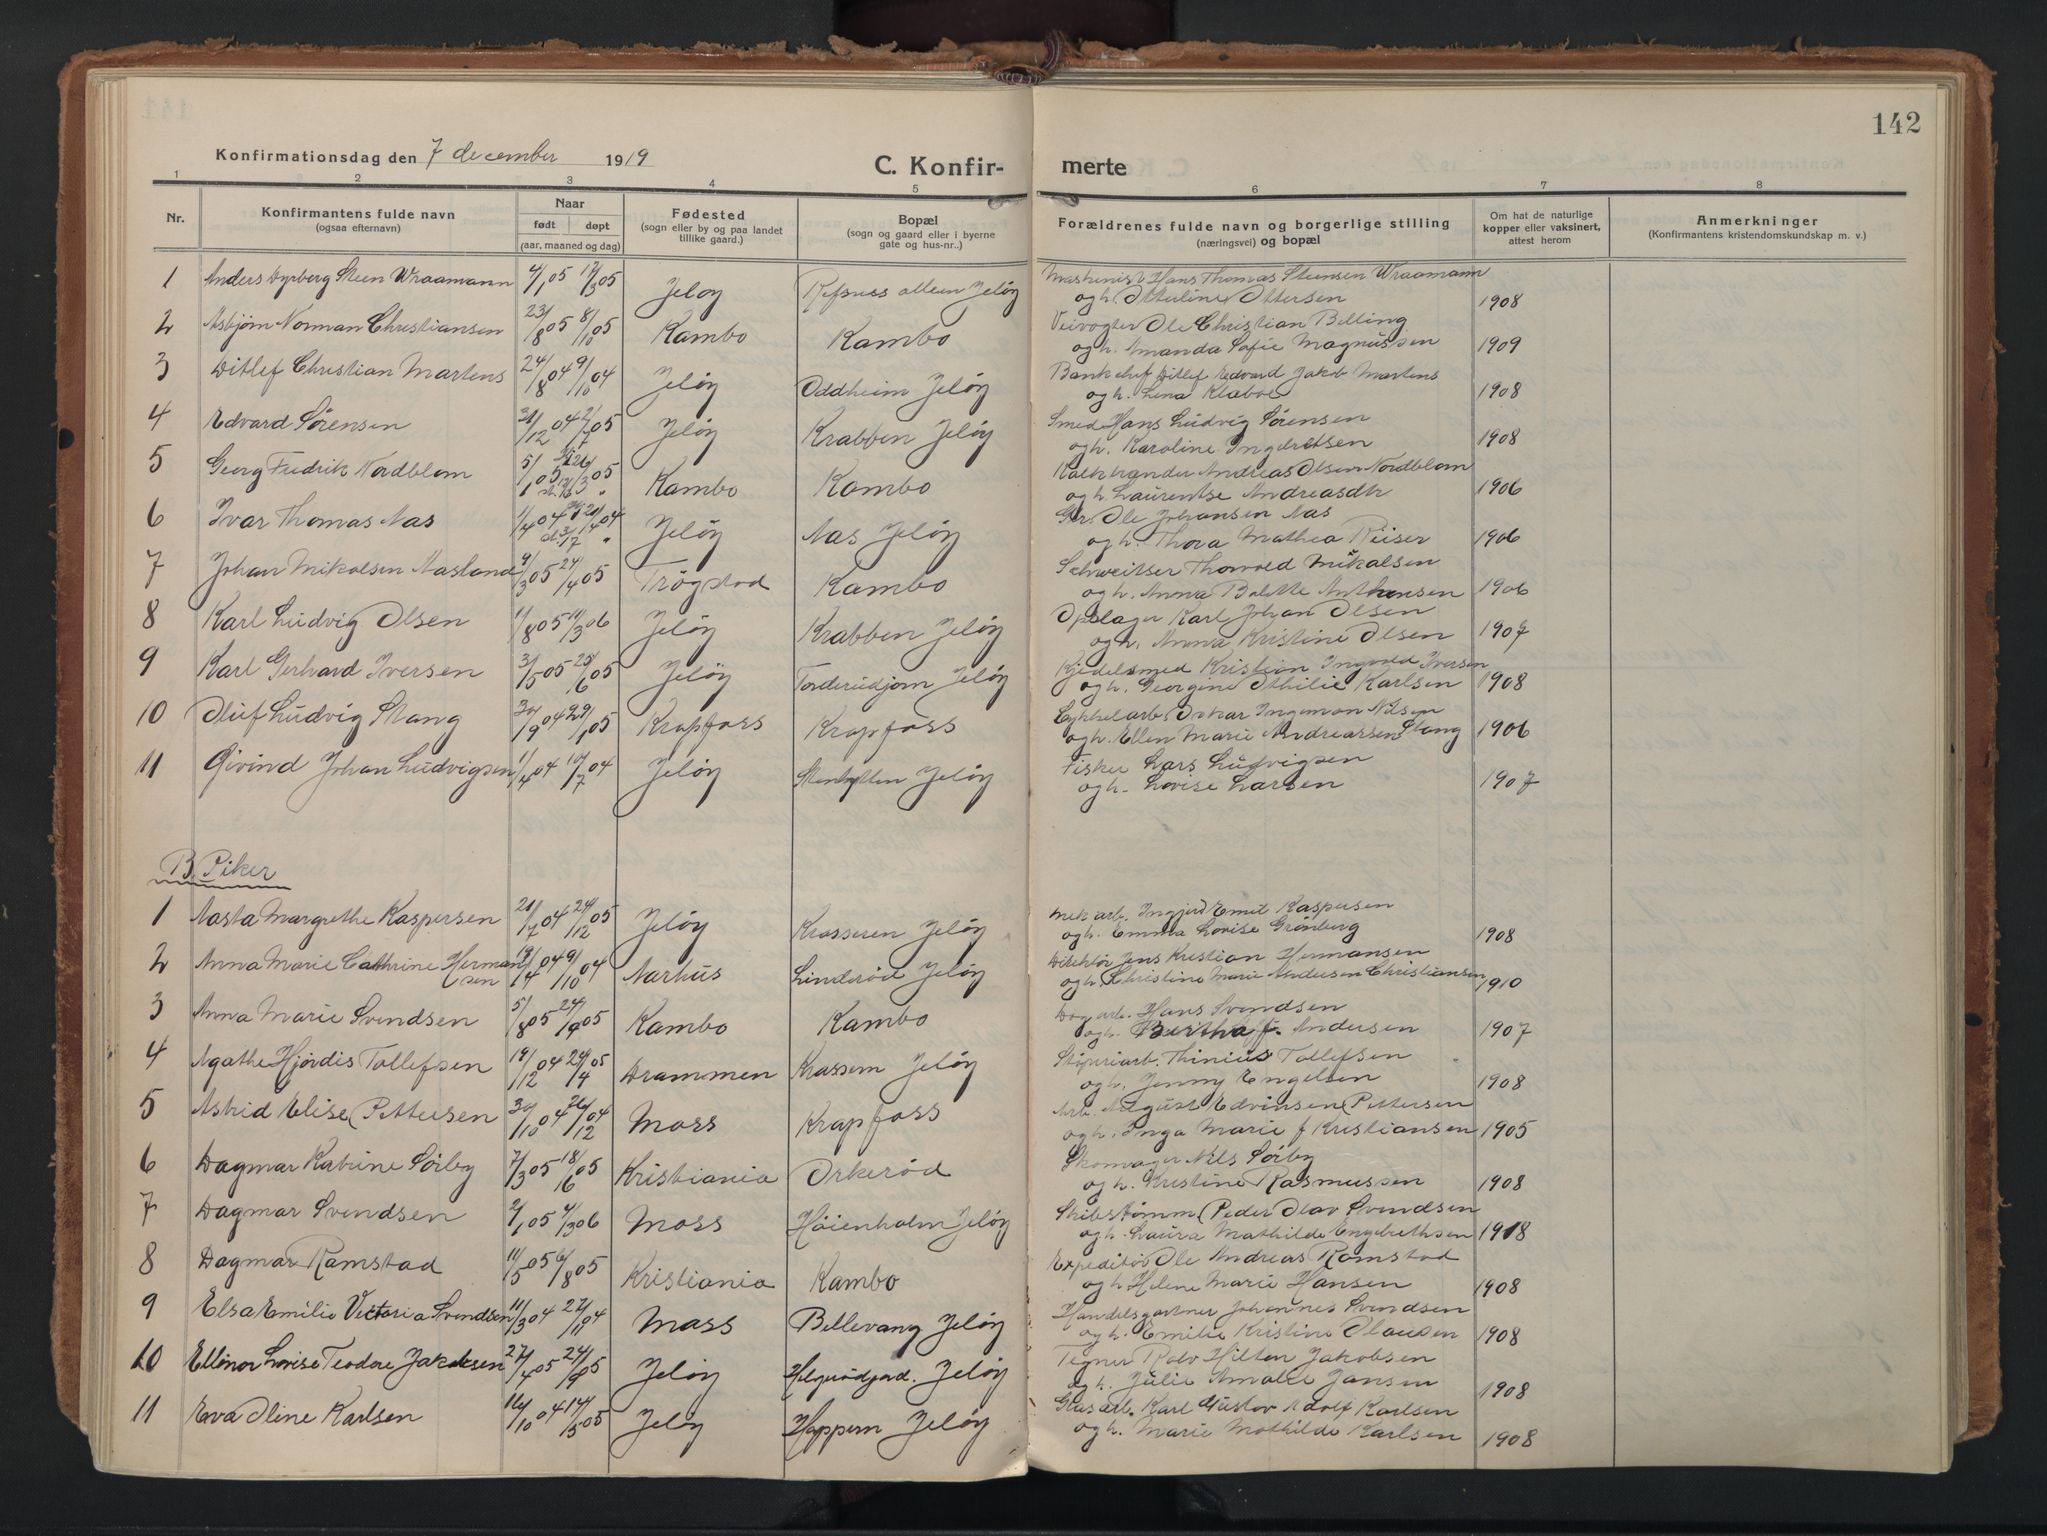 142
Konfirmationsdag den 7 december 1919
C. Konfir-
merte
1 2 3 4 5 6 7 8
Nr.
Konfirmantens fulde navn
(ogsaa efternavn)
Naar
født døpt
(aar, maaned og dag)
Fødested
(sogn eller by og paa landet
tillike gaard.)
Bopæl
(sogn og gaard eller i byerne
gate og hus-nr.)
Forældrenes fulde navn og borgerlige stilling
(næringsvei) og bopæl
Om hat de naturlige
kopper eller vaksinert,
attest herom
Anmerkninger
(Konfirmantens kristendomskundskap m. v.)
1 Anders Dyrberg Steen Wraamann 4/1 05 17/3 05 Jeløy Refsnes alleen Jeløy Maskinist Hans Thomas Steensen Wraamann
og h. Otterline Ottersen 1908
2 Asbjørn Norman Christiansen 23/8 05 8/10 05 Kambo Kambo Veivogter Ole Christian Billing
og h. Amanda Sofie Magnussen 1909
3 Ditlef Christian Martens 24/8 04 9/10 04 Jeløy Oddheim Jeløy Bankchef Ditlef Edvard Jakob Martens
og h. Lena Klæboe 1908
4 Edvard Sørensen 31/12 04 2/7 05 Jeløy Krabben Jeløy Smed Hans Ludvig Sørensen
og h. Karoline Ingeretsen 1908
5 Georg Fredrik Nordblom 5/1 05 26/3 05 Kambo Kambo Andreas Olsen Nordblom
og h. Laurentse Andreasdtr 1906
6 Ivar Thomas Aas 1/4 04 Jeløy Aas Jeløy Gbr. Ole Johansen Aas
og h. Thora Mathea Riiser 1906
7 Johan Mikalsen Aasland 9/3 05 24/4 05 Trøgstad Kambo Schweitser Thorvald Mikalsen
og h. Anna Bolette Anthonsen 1906
8 Karl Ludvig Olsen 11/8 05 11/3 06 Jeløy Krabben Jeløy Opslager Karl Johan Olsen
og h. Anna Kristine Olsen 1907
9 Karl Gerhard Iversen 3/5 05 25/6 05 Jeløy Torderudjom Jeløy Kjedelsmed Kristian Ingvald Iversen
og h. Georgine Othilie Karlsen 1908
10 Oluf Ludvig Stang 30/9 04 29/1 05 Krapfoss Krapfoss Cykkelarb. Oskar Ingeman Nilsen
og h. Ellen Marie Andreassen Stang 1906
11 Øivind Johan Ludvigsen 1/4 04 10/7 04 Jeløy Stenhytten Jeløy Fisker Lars Ludvigsen
og h. Lovise Larsen 1907
B. Piker
1 Aasta Margrethe Kaspersen 21/7 04 24/12 05 Jeløy Krasseren Jeløy Mek arb. Ingjerd Emil Kaspersen
og h. Emma Lovise Grønberg 1908
2 Anna Marie Cathrine Herman
sen 19/4 04 9/10 04 Aarhus Linderød Jeløy Direktør Jens Kristian Hermansen
og h. Christine Marie Andersen Christiansen 1910
3 Anna Marie Svendsen 5/8 05 24/9 05 Kambo Kambo Dagarb. Hans Svendsen
og h. Bertha f. Andersen 1907
4 Agathe Hjørdis Tollefsen 19/12 04 24/4 05 Drammen Krassern Jeløy Støperiarb. Thinius Tollefsen
og h. Jenny Engelsen 1908
5 Astrid Elise Pettersen 30/10 04 26/12 04 Moss Krapfoss Arb. August Edvinsen Pettersen
og h. Inga Marie f Kristiansen 1905
6 Dagmar Katrine Sørby 7/3 05 18/6 05 Kristiania Orkerød Skomager Nils Sørby
og h. Kristine Rasmussen 1908
7 Dagmar Svendsen 2/1 05 4/3 06 Moss Høienholm Jeløy Skibstømm. Peder Olav Svendsen
og h. Laura Mathilde Engebrethsen 1918
8 Dagmar Ramstad 11/5 05 6/8 05 Kristiania Kambo Expeditør Ole Andreas Ramstad
og h Helene Marie Hansen 1908
9 Elsa Emilie Victoria Svendsen 11/3 04 27/11 04 Moss Bellevang Jeløy Handelsgartner Johannes Svendsen
og h. Emilie Kristine Olausen 1908
10 Ellinor Lovise Teodore Jakobsen 27/4 05 24/9 05 Jeløy Helgerødjord. Jeløy Tegner Rolv Hilten Jakobsen
og h. Julie Amalie Jansen 1908
11 Eva Oline Karlsen 16/10 04 14/5 05 Jeløy Hoppern Jeløy Glasarb. Karl Gustav Adolf Karlsen
og h. Marie Mathilde Karlsen 1908